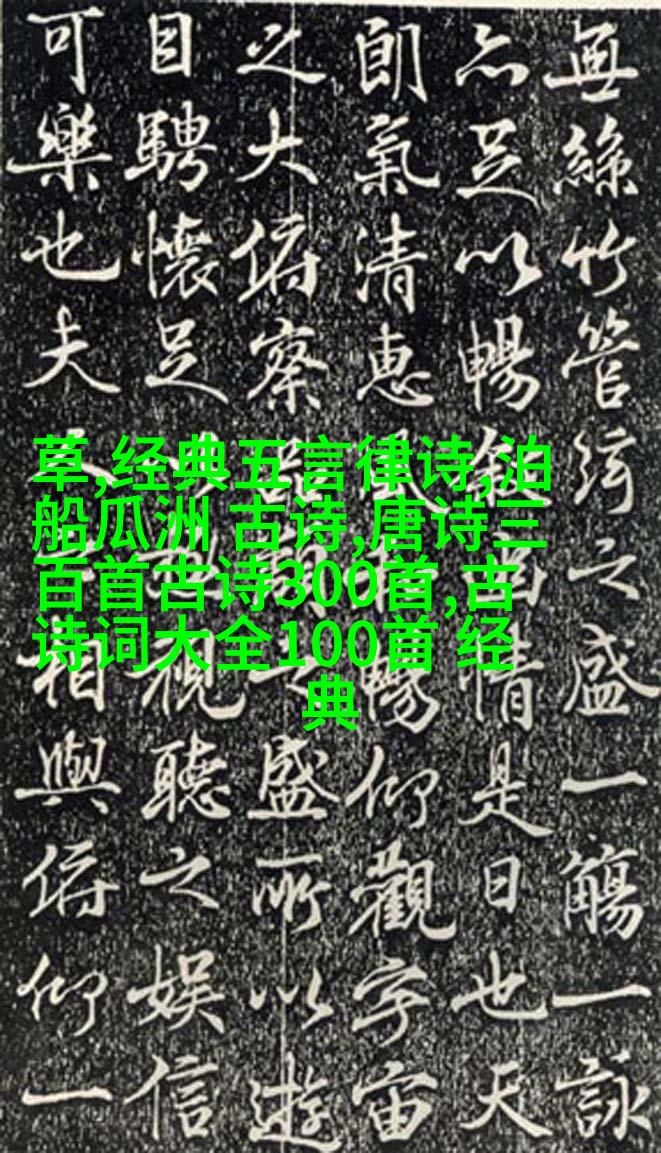 無絲竹管絃之盛一觴一詠
亦足以暢敘幽情是日也天
朗氣清惠風暢仰觀宇宙
之大俯察品之盛所以遊
目騁懷足視聽之娱信
可樂也夫相與俯仰一
草,经典五言律诗,泊
船瓜洲 古诗,唐诗三
百首古诗300首,古
诗词大全100首 经
典